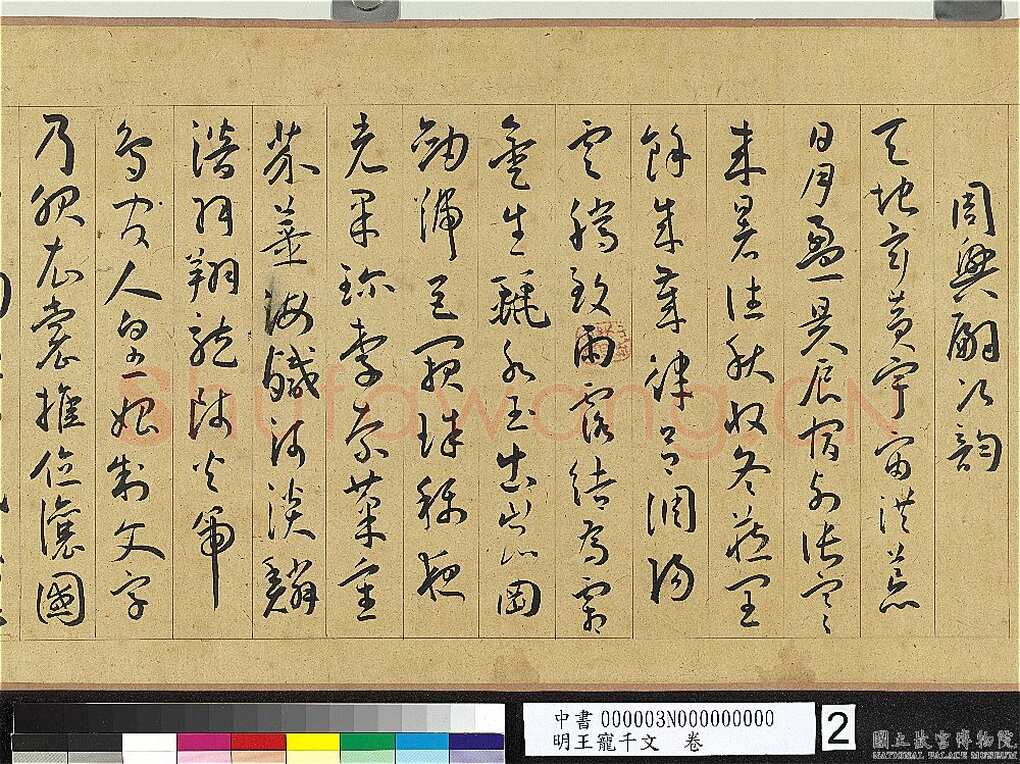 周興嗣次韵
天地玄黃宇宙洪荒
日月盈昃辰宿列張寒
來暑往秋收冬藏閏
餘成歲律呂調陽
雲騰致雨露結為霜
金生麗水玉出崑岡
劍號巨闕珠稱夜
光果珍李柰菜重
芥薑海鹹河淡鱗
潛羽翔龍師火帝
鳥官人皇始制文字
乃服衣裳推位讓國
Shufawang.CN
中書 000003N000000000
明王寵千文 卷
2
國立故宮博物院
NATIONAL PALACE MUSEUM